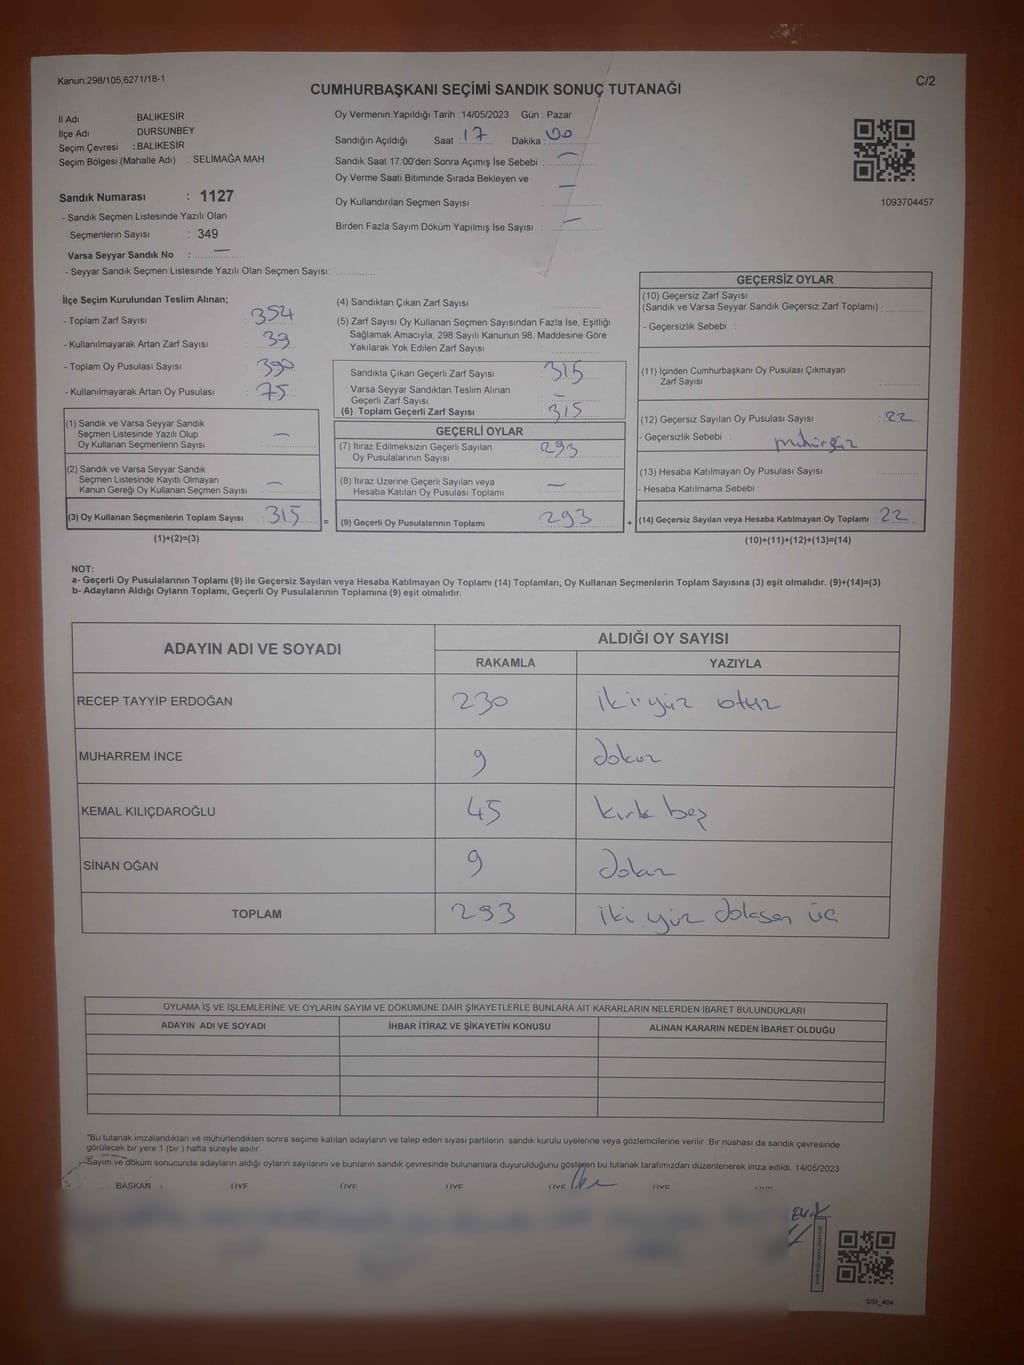 Kanun;298/105,6271/18-1
C/2
CUMHURBAŞKANI SEÇİMİ SANDIK SONUÇ TUTANAĞI
İl Adı : BALIKESİR
İlçe Adı : DURSUNBEY
Seçim Çevresi : BALIKESİR
Seçim Bölgesi (Mahalle Adı) : SELİMAĞA MAH.
Oy Vermenin Yapıldığı Tarih : 14/05/2023 Gün : Pazar
Sandığın Açıldığı Saat 17 Dakika 00
Sandık Saat 17:00'den Sonra Açımış İse Sebebi : —
Oy Verme Saati Bitiminde Sırada Bekleyen ve
Oy Kullandırılan Seçmen Sayısı : —
Birden Fazla Sayım Döküm Yapılmış İse Sayısı : —
1093704457
Sandık Numarası : 1127
- Sandık Seçmen Listesinde Yazılı Olan
Seçmenlerin Sayısı : 349
Varsa Seyyar Sandık No : —
- Seyyar Sandık Seçmen Listesinde Yazılı Olan Seçmen Sayısı:
İlçe Seçim Kurulundan Teslim Alınan;
- Toplam Zarf Sayısı : 354
- Kullanılmayarak Artan Zarf Sayısı : 39
- Toplam Oy Pusulası Sayısı : 390
- Kullanılmayarak Artan Oy Pusulası : 75
(1) Sandık ve Varsa Seyyar Sandık
Seçmen Listesinde Yazılı Olup
Oy Kullanan Seçmenlerin Sayısı : —
(2) Sandık ve Varsa Seyyar Sandık
Seçmen Listesinde Kayıtlı Olmayan
Kanun Gereği Oy Kullanan Seçmen Sayısı : —
(3) Oy Kullanan Seçmenlerin Toplam Sayısı : 315
(1)+(2)=(3)
(4) Sandıktan Çıkan Zarf Sayısı :
(5) Zarf Sayısı Oy Kullanan Seçmen Sayısından Fazla İse, Eşitliği
Sağlamak Amacıyla, 298 Sayılı Kanunun 98. Maddesine Göre
Yakılarak Yok Edilen Zarf Sayısı :
Sandıkta Çıkan Geçerli Zarf Sayısı : 315
Varsa Seyyar Sandıktan Teslim Alınan
Geçerli Zarf Sayısı : —
(6) Toplam Geçerli Zarf Sayısı : 315
GEÇERLİ OYLAR
(7) İtiraz Edilmeksizin Geçerli Sayılan
Oy Pusulalarının Sayısı : 293
(8) İtiraz Üzerine Geçerli Sayılan veya
Hesaba Katılan Oy Pusulası Toplamı : —
= (9) Geçerli Oy Pusulalarının Toplamı : 293
GEÇERSİZ OYLAR
(10) Geçersiz Zarf Sayısı
(Sandık ve Varsa Seyyar Sandık Geçersiz Zarf Toplamı) :
- Geçersizlik Sebebi :
(11) İçinden Cumhurbaşkanı Oy Pusulası Çıkmayan
Zarf Sayısı :
(12) Geçersiz Sayılan Oy Pusulası Sayısı : 22
- Geçersizlik Sebebi : mühürsüz
(13) Hesaba Katılmayan Oy Pusulası Sayısı :
- Hesaba Katılmama Sebebi :
+ (14) Geçersiz Sayılan veya Hesaba Katılmayan Oy Toplamı : 22
(10)+(11)+(12)+(13)=(14)
NOT:
a- Geçerli Oy Pusulalarının Toplamı (9) ile Geçersiz Sayılan veya Hesaba Katılmayan Oy Toplamı (14) Toplamları, Oy Kullanan Seçmenlerin Toplam Sayısına (3) eşit olmalıdır. (9)+(14)=(3)
b- Adayların Aldığı Oyların Toplamı, Geçerli Oy Pusulalarının Toplamına (9) eşit olmalıdır.
ADAYIN ADI VE SOYADI
ALDIĞI OY SAYISI
RAKAMLA YAZIYLA
RECEP TAYYİP ERDOĞAN 230 iki yüz otuz
MUHARREM İNCE 9 dokuz
KEMAL KILIÇDAROĞLU 45 kırk beş
SİNAN OĞAN 9 dokuz
TOPLAM 293 iki yüz doksan üç
OYLAMA İŞ VE İŞLEMLERİNE VE OYLARIN SAYIM VE DÖKÜMÜNE DAİR ŞİKAYETLERLE BUNLARA AİT KARARLARIN NELERDEN İBARET BULUNDUKLARI
ADAYIN ADI VE SOYADI İHBAR İTİRAZ VE ŞİKAYETİN KONUSU ALINAN KARARIN NEDEN İBARET OLDUĞU
*Bu tutanak imzalandıktan ve mühürlendikten sonra seçime katılan adayların ve talep eden siyasi partilerin sandık kurulu üyelerine veya gözlemcilerine verilir. Bir nüshası da sandık çevresinde
görülecek bir yere 1 (bir ) hafta süreyle asılır.
Sayım ve döküm sonucunda adayların aldığı oyların sayılarını ve bunların sandık çevresinde bulunanlara duyurulduğunu gösteren bu tutanak tarafımızdan düzenlenerek imza edildi. 14/05/2023
BAŞKAN ÜYE ÜYE ÜYE ÜYE ÜYE
SSI_404